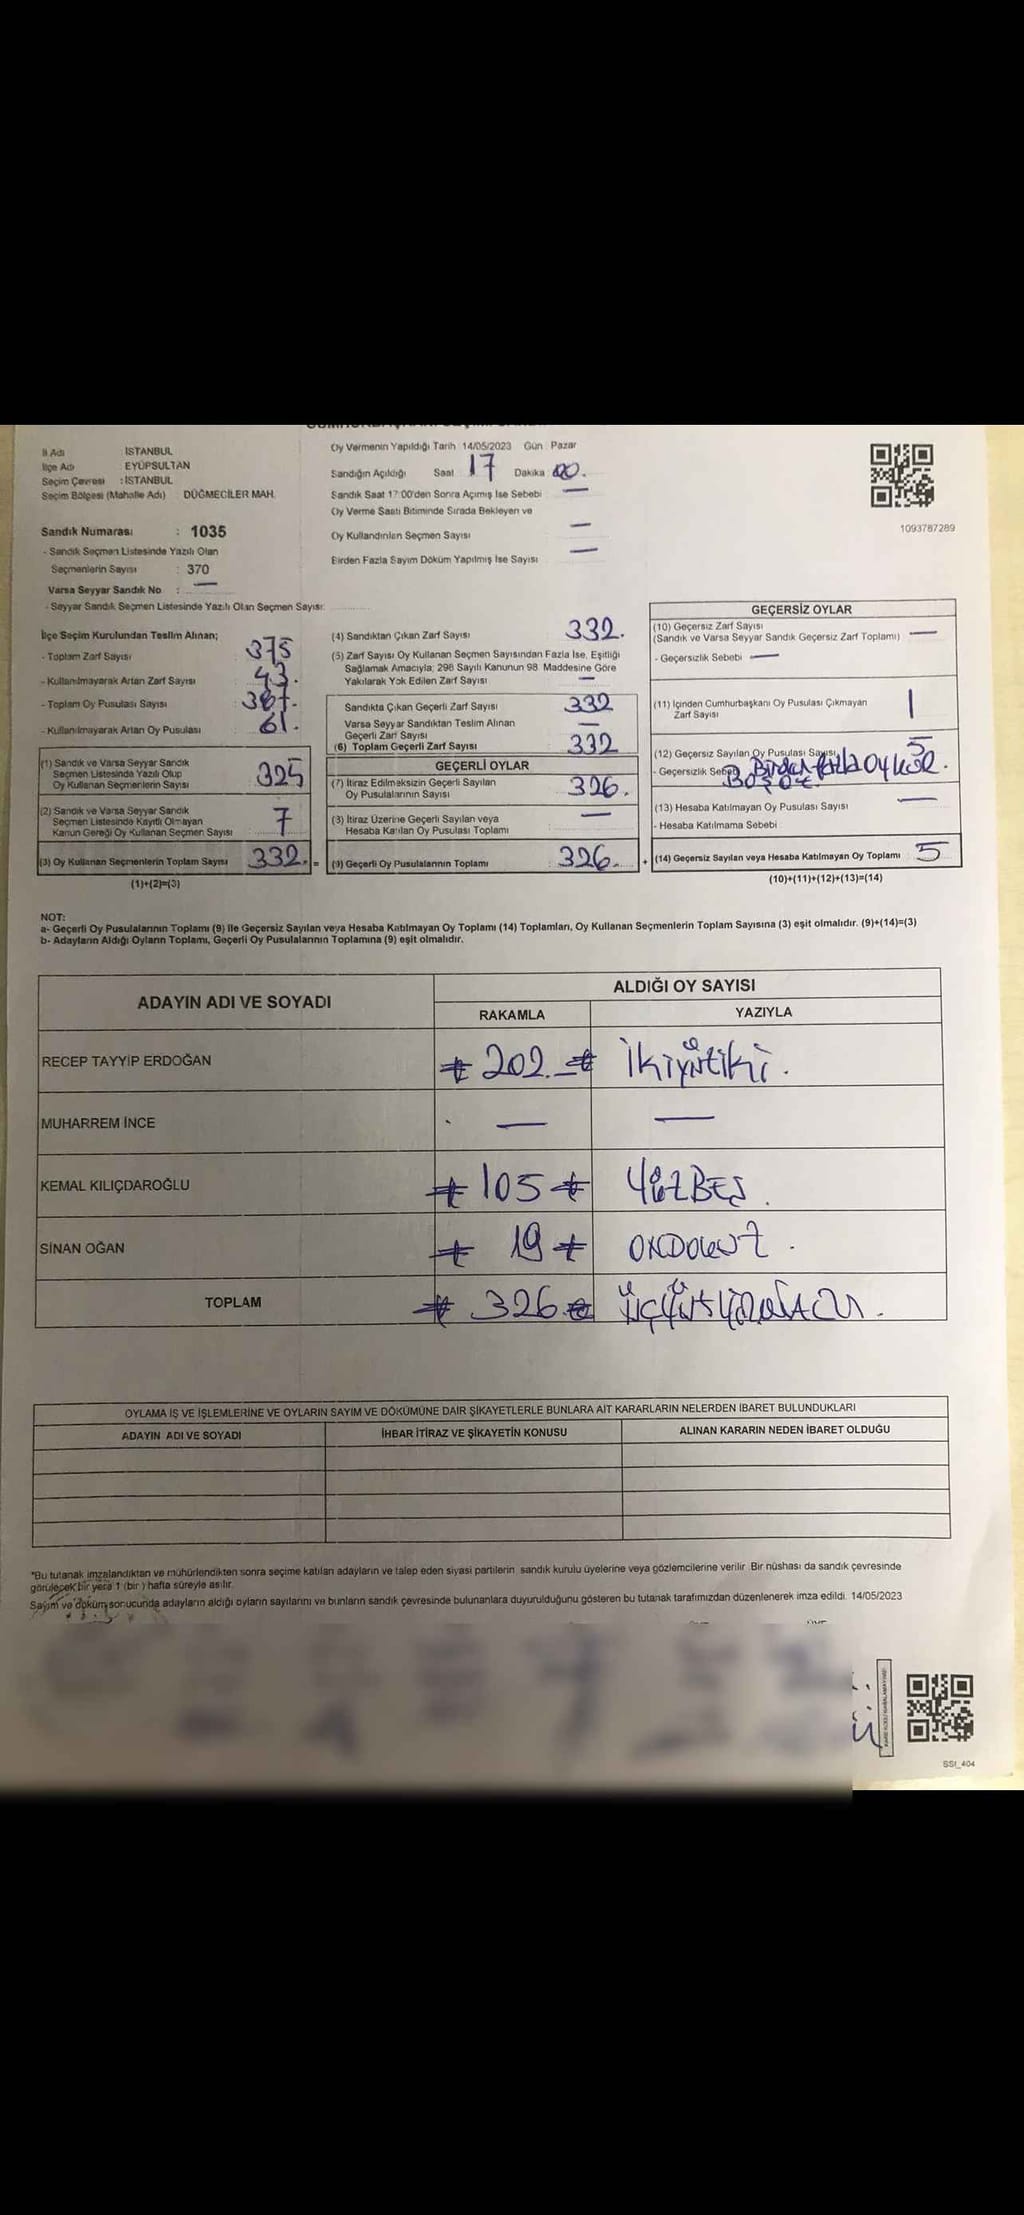 İl Adı İSTANBUL
İlçe Adı EYÜPSULTAN
Seçim Çevresi : İSTANBUL
Seçim Bölgesi (Mahalle Adı) DÜĞMECİLER MAH.
Sandık Numarası : 1035
- Sandık Seçmen Listesinde Yazılı Olan
Seçmenlerin Sayısı : 370
Varsa Seyyar Sandık No : —
- Seyyar Sandık Seçmen Listesinde Yazılı Olan Seçmen Sayısı:
Oy Vermenin Yapıldığı Tarih 14/05/2023 Gün : Pazar
Sandığın Açıldığı Saat 17 Dakika 00.
Sandık Saat 17:00'den Sonra Açımış İse Sebebi —
Oy Verme Saati Bitiminde Sırada Bekleyen ve
Oy Kullandırılan Seçmen Sayısı —
Birden Fazla Sayım Döküm Yapılmış İse Sayısı —
1093787289
İlçe Seçim Kurulundan Teslim Alınan;
- Toplam Zarf Sayısı : 375
- Kullanılmayarak Artan Zarf Sayısı : 43.
- Toplam Oy Pusulası Sayısı : 387.
- Kullanılmayarak Artan Oy Pusulası : 61.
(1) Sandık ve Varsa Seyyar Sandık
Seçmen Listesinde Yazılı Olup
Oy Kullanan Seçmenlerin Sayısı 325
(2) Sandık ve Varsa Seyyar Sandık
Seçmen Listesinde Kayıtlı Olmayan
Kanun Gereği Oy Kullanan Seçmen Sayısı 7
(3) Oy Kullanan Seçmenlerin Toplam Sayısı 332. =
(1)+(2)=(3)
(4) Sandıktan Çıkan Zarf Sayısı 332.
(5) Zarf Sayısı Oy Kullanan Seçmen Sayısından Fazla İse, Eşitliği
Sağlamak Amacıyla; 298 Sayılı Kanunun 98. Maddesine Göre
Yakılarak Yok Edilen Zarf Sayısı —
Sandıkta Çıkan Geçerli Zarf Sayısı 332
Varsa Seyyar Sandıktan Teslim Alınan
Geçerli Zarf Sayısı —
(6) Toplam Geçerli Zarf Sayısı 332
GEÇERLİ OYLAR
(7) İtiraz Edilmeksizin Geçerli Sayılan
Oy Pusulalarının Sayısı 326.
(8) İtiraz Üzerine Geçerli Sayılan veya
Hesaba Katılan Oy Pusulası Toplamı —
(9) Geçerli Oy Pusulalarının Toplamı : 326. +
GEÇERSİZ OYLAR
(10) Geçersiz Zarf Sayısı
(Sandık ve Varsa Seyyar Sandık Geçersiz Zarf Toplamı) —
- Geçersizlik Sebebi —
(11) İçinden Cumhurbaşkanı Oy Pusulası Çıkmayan
Zarf Sayısı 1
(12) Geçersiz Sayılan Oy Pusulası Sayısı 5
- Geçersizlik Sebebi Birden fazla oy
(13) Hesaba Katılmayan Oy Pusulası Sayısı —
- Hesaba Katılmama Sebebi
(14) Geçersiz Sayılan veya Hesaba Katılmayan Oy Toplamı : 5
(10)+(11)+(12)+(13)=(14)
NOT:
a- Geçerli Oy Pusulalarının Toplamı (9) ile Geçersiz Sayılan veya Hesaba Katılmayan Oy Toplamı (14) Toplamları, Oy Kullanan Seçmenlerin Toplam Sayısına (3) eşit olmalıdır. (9)+(14)=(3)
b- Adayların Aldığı Oyların Toplamı, Geçerli Oy Pusulalarının Toplamına (9) eşit olmalıdır.
ADAYIN ADI VE SOYADI
ALDIĞI OY SAYISI
RAKAMLA YAZIYLA
RECEP TAYYİP ERDOĞAN 202 İkiyüziki.
MUHARREM İNCE — —
KEMAL KILIÇDAROĞLU 105 YÜZBEŞ.
SİNAN OĞAN 19 ONDOKUZ.
TOPLAM 326 ÜÇYÜZYİRMİALTI.
OYLAMA İŞ VE İŞLEMLERİNE VE OYLARIN SAYIM VE DÖKÜMÜNE DAİR ŞİKAYETLERLE BUNLARA AİT KARARLARIN NELERDEN İBARET BULUNDUKLARI
ADAYIN ADI VE SOYADI İHBAR İTİRAZ VE ŞİKAYETİN KONUSU ALINAN KARARIN NEDEN İBARET OLDUĞU
*Bu tutanak imzalandıktan ve mühürlendikten sonra seçime katılan adayların ve talep eden siyasi partilerin sandık kurulu üyelerine veya gözlemcilerine verilir. Bir nüshası da sandık çevresinde
görülecek bir yere 1 (bir) hafta süreyle asılır.
Sayım ve döküm sonucunda adayların aldığı oyların sayılarını ve bunların sandık çevresinde bulunanlara duyurulduğunu gösteren bu tutanak tarafımızdan düzenlenerek imza edildi. 14/05/2023
SSI_404